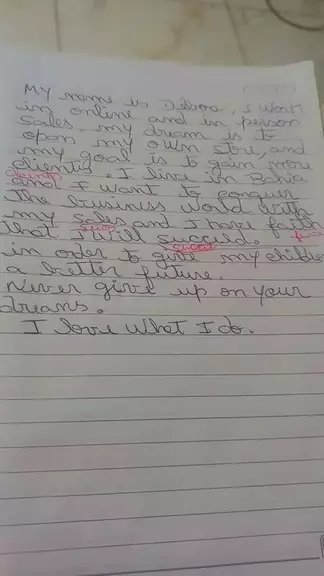 MY name is Debora, I work
in online and in person
sales. my dream is to
open my own store, and
my goal is to gain more
clients. I live in Bahia
and I want to conquer
the business world with
my sales and I have faith
that I will succeed.
in order to give my childre
a better future.
Never give up on your
dreams.
I love what I do.